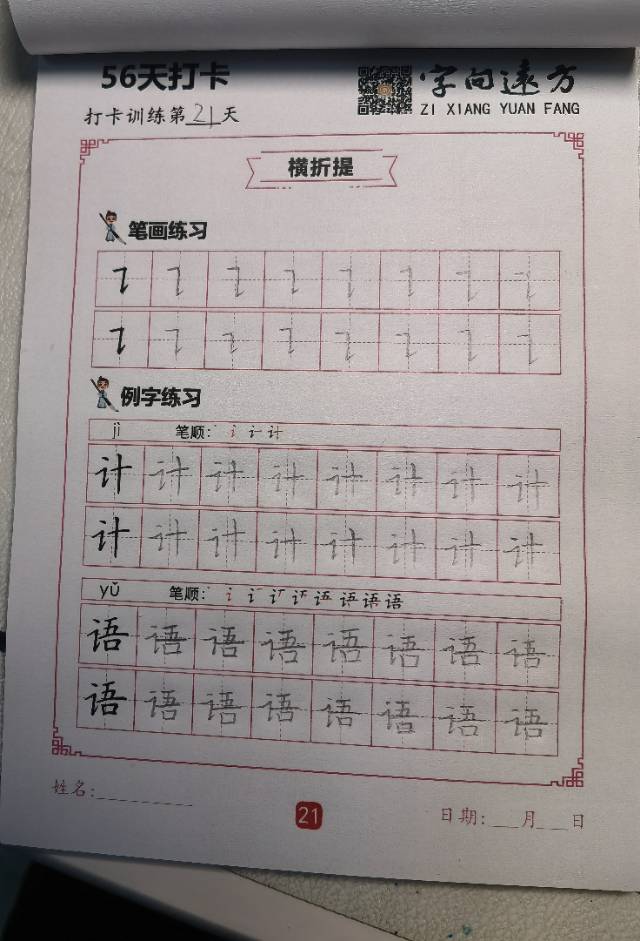 56天打卡
字向远方
ZI XIANG YUAN FANG
打卡训练第21天
横折提
笔画练习
㇊ ㇊ ㇊ ㇊ ㇊ ㇊ ㇊ ㇊
㇊ ㇊ ㇊ ㇊ ㇊ ㇊ ㇊ ㇊
例字练习
jì 笔顺:
计 计 计 计 计 计 计 计
计 计 计 计 计 计 计 计
yǔ 笔顺:
语 语 语 语 语 语 语 语
语 语 语 语 语 语 语 语
姓名:
21
日期: 月 日